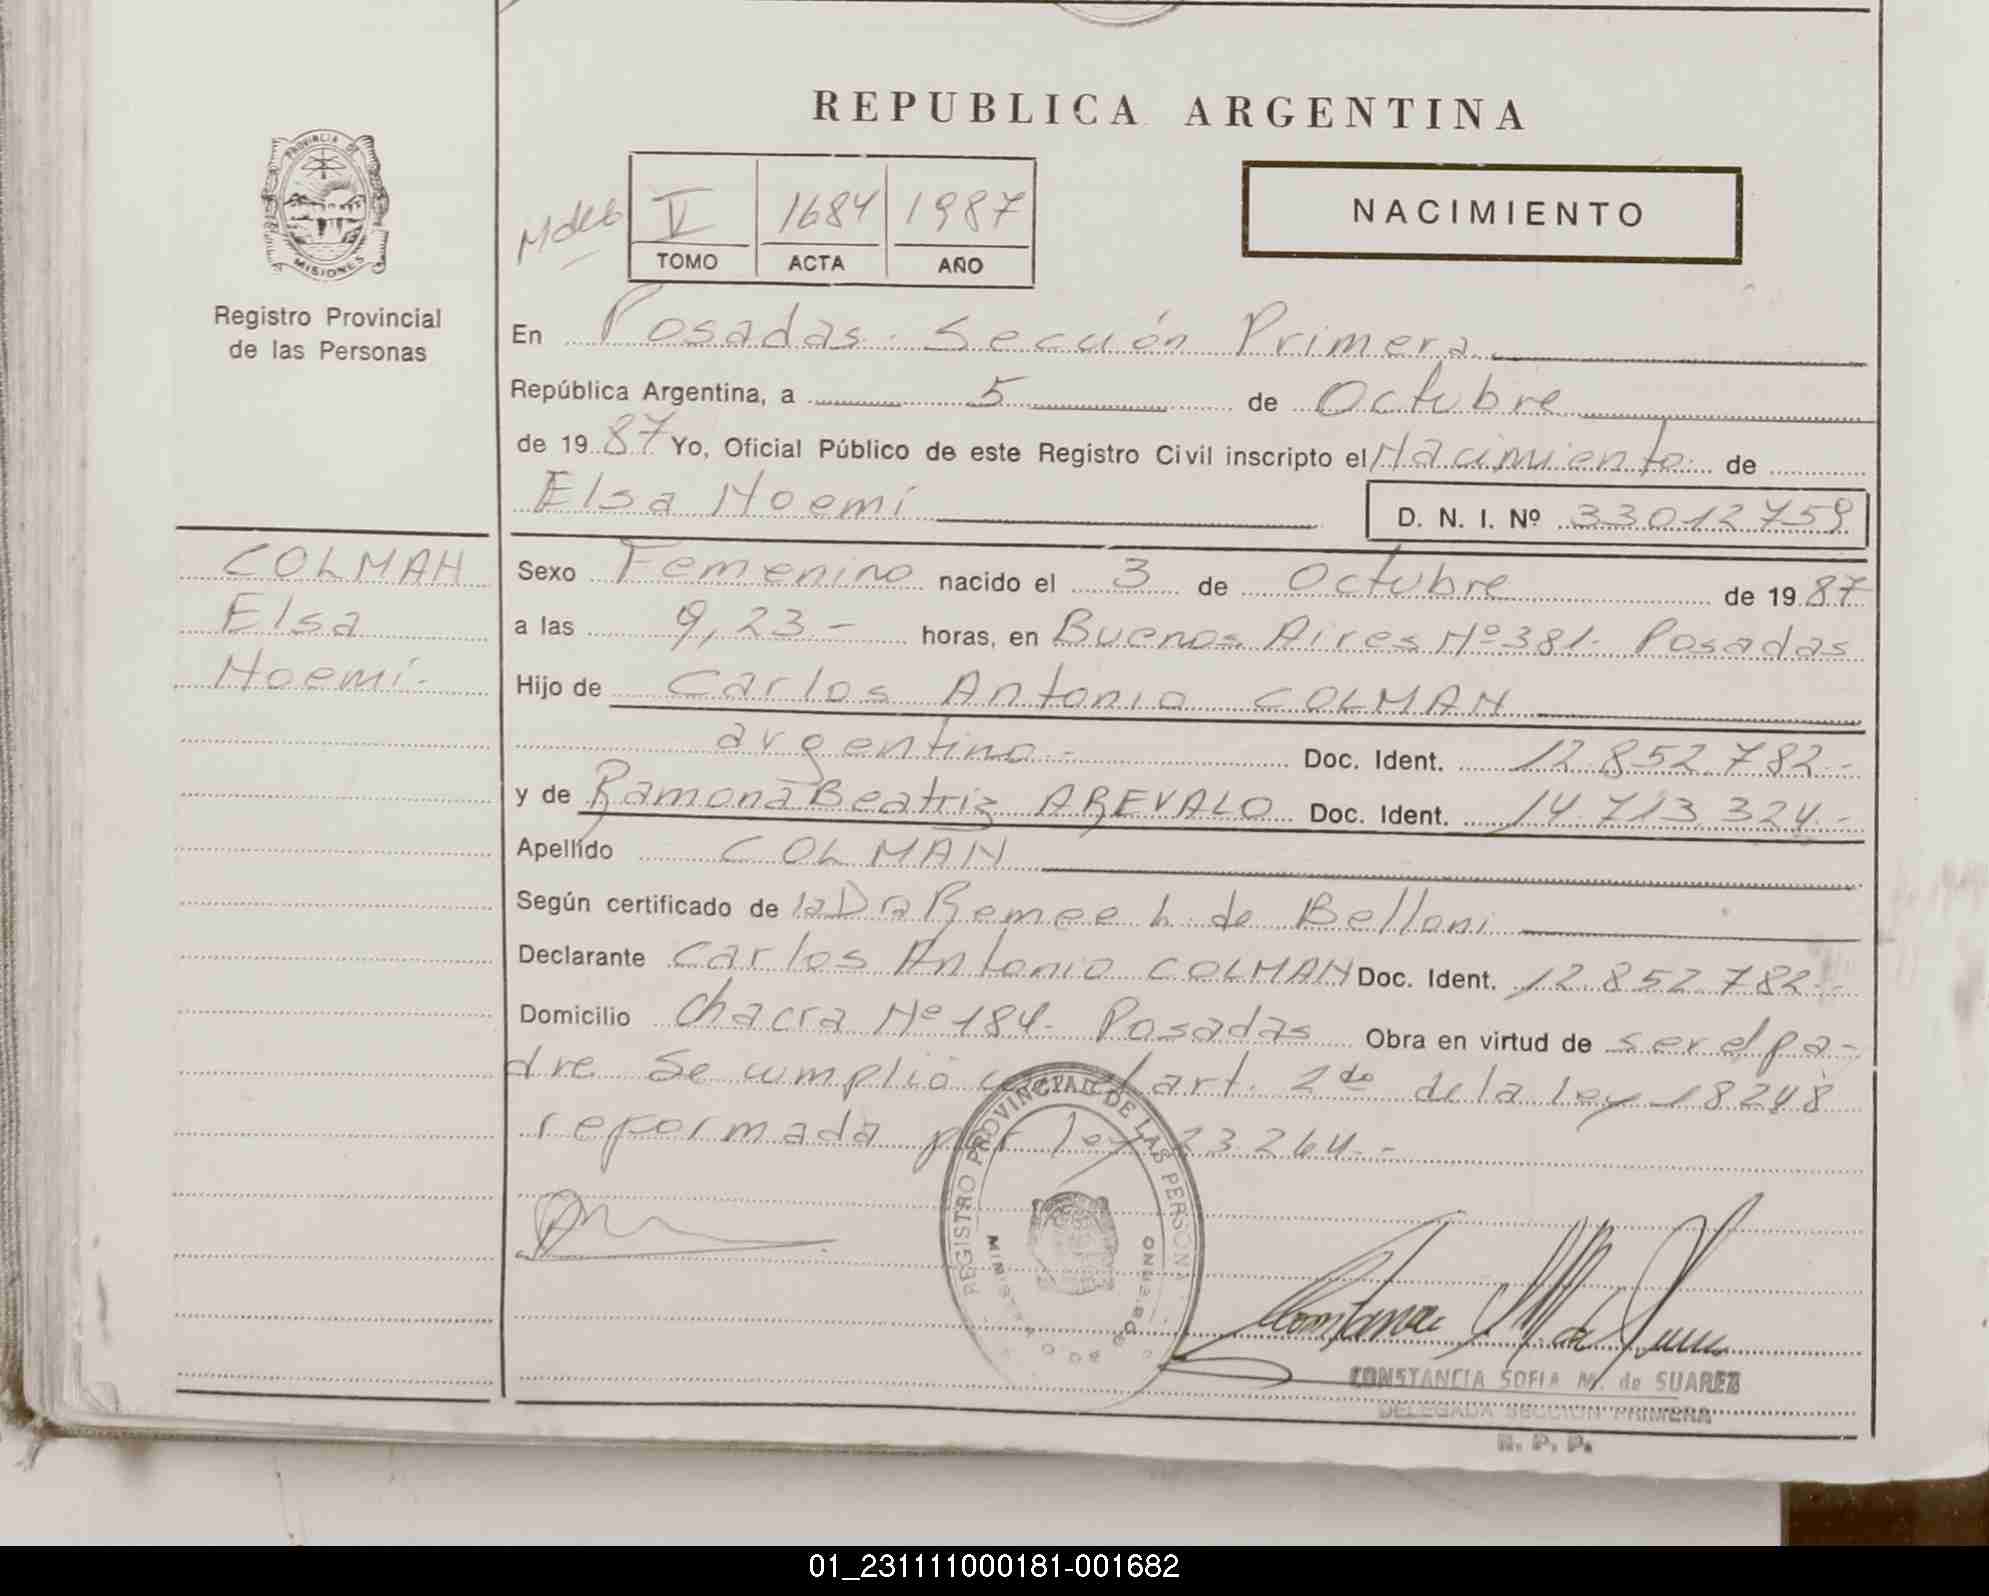 REPUBLICA ARGENTINA
PROVINCIA DE
MISIONES
Registro Provincial
de las Personas
V 1684 1987
TOMO ACTA AÑO
NACIMIENTO
En Posadas. Sección Primera.
República Argentina, a 5 de Octubre
de 19 87 Yo, Oficial Público de este Registro Civil inscripto el Nacimiento de
Elsa Noemí D. N. I. Nº 33012759
COLMAN
Elsa
Noemí.
Sexo Femenino nacido el 3 de Octubre de 19 87
a las 9,23 - horas, en Buenos Aires Nº 381. Posadas
Hijo de Carlos Antonio COLMAN
argentino - Doc. Ident. 12.852.782.-
y de Ramona Beatriz AREVALO Doc. Ident. 14.713.324.-
Apellido COLMAN
Según certificado de la Dra Remee L. de Belloni
Declarante Carlos Antonio COLMAN Doc. Ident. 12.852.782.-
Domicilio Chacra Nº 184. Posadas Obra en virtud de ser el pa-
dre Se cumplió con el art. 2do de la ley 18248
reformada por ley 23.264.-
REGISTRO PROVINCIAL DE LAS PERSONA
CONSTANCIA SOFIA M. de SUAREZ
DELEGADA SECCION PRIMERA
R. P. P.
01_231111000181-001682